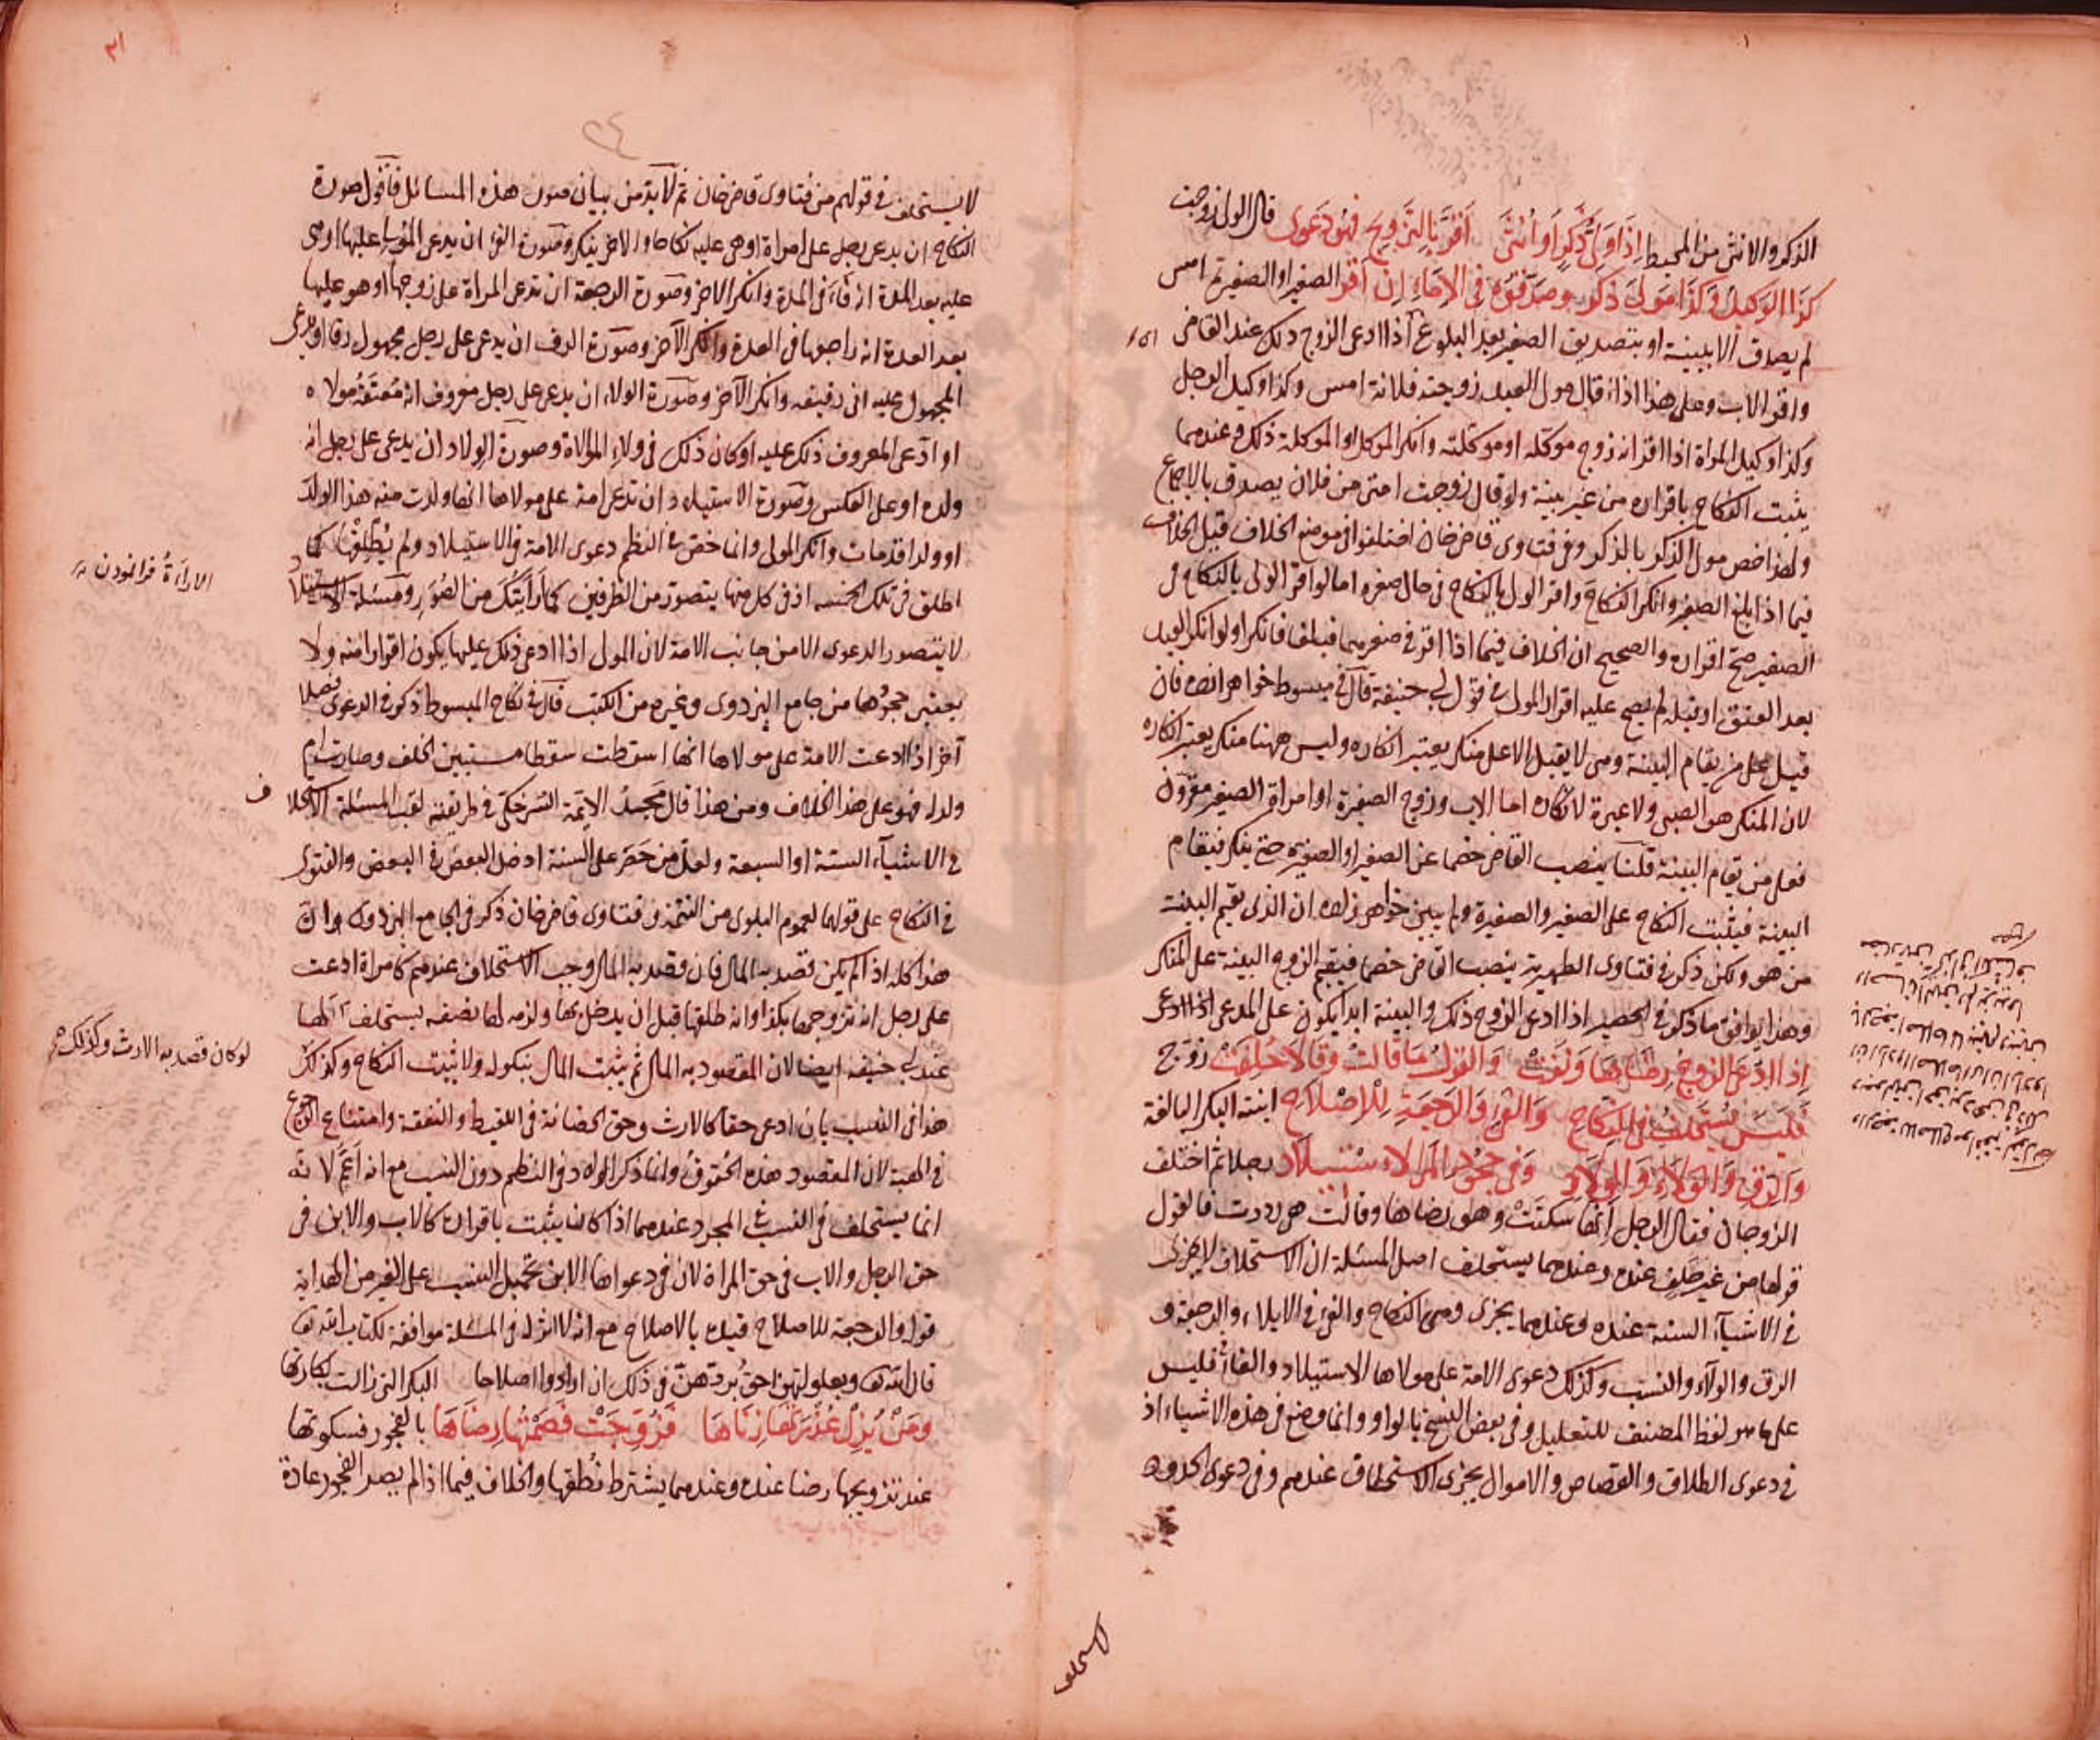 الذكر والانثى من المحيط اذا ولي ذكر او انثى اقر بالتزويج فهو دعوى قال الولي زوجت
كذا الوكيل وكذا مولى ذكر وصدقوه في الاماء ان اقر الصغير او الصغيرة امس
لم يصدق الا ببينة او بتصديق الصغير بعد البلوغ اذا ادعى الزوج ذلك عند القاضي
واقر الاب وعلى هذا اذا قال مولى العبد زوجته فلانة امس وكذا وكيل الرجل
وكذا وكيل المراة اذا اقر انه زوج موكله او موكلته وانكر الموكل او الموكلة ذلك وعندهما
يثبت النكاح باقراره من غير بينة ولو قال زوجت امتي من فلان يصدق بالاجماع
ولهذا خص مولى الذكر بالذكر وفي فتاوى قاضيخان اختلفوا في موضع الخلاف قيل الخلاف
فيما اذا بلغ الصغير وانكر النكاح واقر الولي بالنكاح في حال صغره اما لو اقر الولي بالنكاح في
الصغير صح اقراره والصحيح ان الخلاف فيما اذا اقر في صغرهما فبلغا فانكرا ولو انكر العبد
بعد العتق او قبله لم يصح عليه اقرار المولى في قول ابي حنيفة قال في مبسوط خواهر زاده فان
قيل على من يقام البينة وهي لا يقبل الا على منكر يعتبر انكاره وليس ههنا منكر يعتبر انكاره
لان المنكر هو الصبي ولا عبرة لانكاره اما الاب وزوج الصغيرة او امراة الصغير مقرون
فعلى من يقام البينة قلنا ينصب القاضي خصما عن الصغير او الصغيرة حتى ينكر فيقام
البينة فيثبت النكاح على الصغير والصغيرة ولم يبين خواهر زاده ان الذي يقيم البينة
من هو ولكن ذكر في فتاوى الظهيرية ينصب القاضي خصما فيقيم الزوج البينة على المنكر
وهذا يوافق ما ذكر في الحصير اذا ادعى الزوج ذلك والبينة ابدا يكون على المدعي اذا ادعى
اذا ادعى الزوج رضاها ونفت والقول ما قالت وقالا حلفت زوج
فليس يستحلف في النكاح والفيء والرجعة للاصلاح ابنته البكر البالغة
والرق والولاء والولاد وفي جحود الامر الاستيلاد رجلا ثم اختلف
الزوجان فقال الرجل انها سكتت وهو رضاها وقالت هي رددت فالقول
قولها من غير حلف عنده وعندهما يستحلف اصل المسئلة ان الاستحلاف لا يجزى
في الاشياء الستة عنده وعندهما يجزى وهي النكاح والفئ في الايلاء والرجعة و
الرق والولاء والنسب وكذلك دعوى الامة على مولاها الاستيلاد والفاء في فليس
على ما هو لفظ المصنف للتعليل وفي بعض النسخ بالواو وانما وضع في هذه الاشياء اذ
في دعوى الطلاق والقصاص والاموال يجزى الاستحلاف عندهم وفي دعوى الحدود
لا يستحلف في قولهم من فتاوى قاضيخان ثم لا بد من بيان صورة هذه المسائل فاقول صورة
النكاح ان يدعي رجل على امراة او هي عليه نكاحا والاخر ينكر وصورة الفئ ان يدعي المولي عليها او هي
عليه بعد المدة انه فاء في المدة وانكر الاخر وصورة الرجعة ان تدعي المراة على زوجها او هو عليها
بعد العدة انه راجعها في العدة وانكر الآخر وصورة الرق ان يدعي على رجل مجهول رقا او يدعي
المجهول عليه اني رقيقه وانكر الآخر وصورة الولاء ان يدعي على رجل معروف انه معتقه مولاه
او ادعى المعروف ذلك عليه او كان ذلك في ولاء الموالاة وصورة الولاد ان يدعي على رجل انه
ولده او على العكس وصورة الاستيلاد ان تدعي امة على مولاها انها ولدت منه هذا الولد
او ولدا قد مات وانكر المولى وانما خص في النظم دعوى الامة في الاستيلاد ولم يطلقها كما
اطلق في تلك الخمسة اذ في كل منها يتصور من الطرفين كما رايتك من الصور ومسئلة الاستيلاد
لا يتصور الدعوى الا من جانب الامة لان المولى اذا ادعى ذلك عليها يكون اقرارا منه ولا
يعتبر جحودها من جامع البزدوي وغيره من الكتب قال في نكاح المبسوط ذكر في الدعوى فصلا
آخر اذا ادعت الامة على مولاها انها اسقطت سقطا مستبين الخلق وصارت ام
ولد له فهو على هذا الخلاف ومن هذا قال مجد الائمة السرخكتي في طريقته لقب المسئلة الاستحلاف
في الاشياء الستة او السبعة ولعل من حصر على الستة ادخل البعض في البعض والفتوى
في النكاح على قولهما لعموم البلوى من التتمة وفتاوى قاضيخان ذكر في الجامع البزدوي وان
هذا كله اذا لم يكن قصد به المال فان قصد به المال وجب الاستحلاف عندهم كامراة ادعت
على رجل انه تزوجها بكذا وانه طلقها قبل ان يدخل بها ولزمه لها نصفه يستحلف لها
عند ابي حنيفة ايضا لان المقصود به المال ثم يثبت المال بنكوله ولا يثبت النكاح وكذلك
هذا في النسب بان ادعى حقا كالارث وحق الحضانة في اللقيط والنفقة وامتناع الرجوع
في الهبة لان المقصود هذه الحقوق وانما ذكر الولاد في النظم دون النسب مع انه اعم لانه
انما يستحلف في النسب المجرد عندهما اذا كان يثبت باقراره كالاب والابن في
حق الرجل والاب في حق المراة لان في دعواها الابن تحميل النسب على الغير من الهداية
قوله والرجعة للاصلاح قيد بالاصلاح مع انه لا اثر له في المسئلة موافقة لكتاب الله تع
قال الله تع وبعولتهن احق بردهن في ذلك ان ارادوا اصلاحا البكر التي زالت بكارتها
ومن يزل عذرتها زناها فزوجت فصمتها رضاها بالفجور فسكوتها
عند تزويجها رضا عنده وعندهما يشترط نطقها والخلاف فيما اذا لم يصر الفجور عادة
لو كان قصد به الارث وكذلك